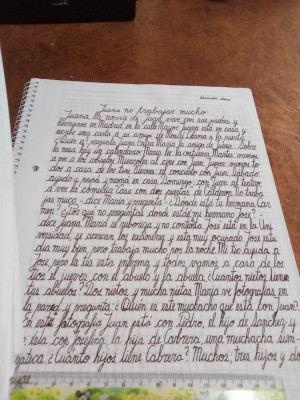 Juana no trabajar mucho
Juana la novia de Juan, vive con sus padres y
hermanos en Madrid, en la calle Mayor. Juana está en casa y
escribe una carta a su amiga de María. Llama a la puerta
¿Quién es? pregunta Juana. Entra María la amiga de Juana. Sobre
la mesa hay un calendario. María lee: la costurera. Martes: vamos
a ver a los abuelos. Miércoles: al cine con Juan. Jueves: vamos to-
dos a casa de los tíos. Viernes: al concierto con Juan. Sábado:
ayudo a mamá y mamá en casa. Domingo: con Juan al teatro
a ver la comedia Casa con dos puertas de Calderón. No traba-
jas mucho - dice María y pregunta - ¿Dónde está tu hermana Car-
men? ¿Por qué no preguntas dónde está mi hermano José? -
dice Juana. María se ruboriza y no contesta. José está en la Uni-
versidad, se acercan los exámenes y está muy ocupado. José estu-
dia muy bien, pero trabaja mucho por la noche. Me toca ayudar a
José, pero la tía está enferma y todos vamos a casa de los
tíos el jueves con el abuelo y la abuela. ¿Cuántos nietos tienen
tus abuelos? Dos nietos y mucha nietas. María ve fotografías en
la pared y pregunta: ¿Quién es este muchacho que está con Juan?
En esta fotografía Juan está con Pedro, el hijo de Sánchez, y
esta con Josefina, la hija de Cabrera, una muchacha sim-
pática. ¿Cuánto hijos tiene Cabrera? Muchos, tres hijos y do